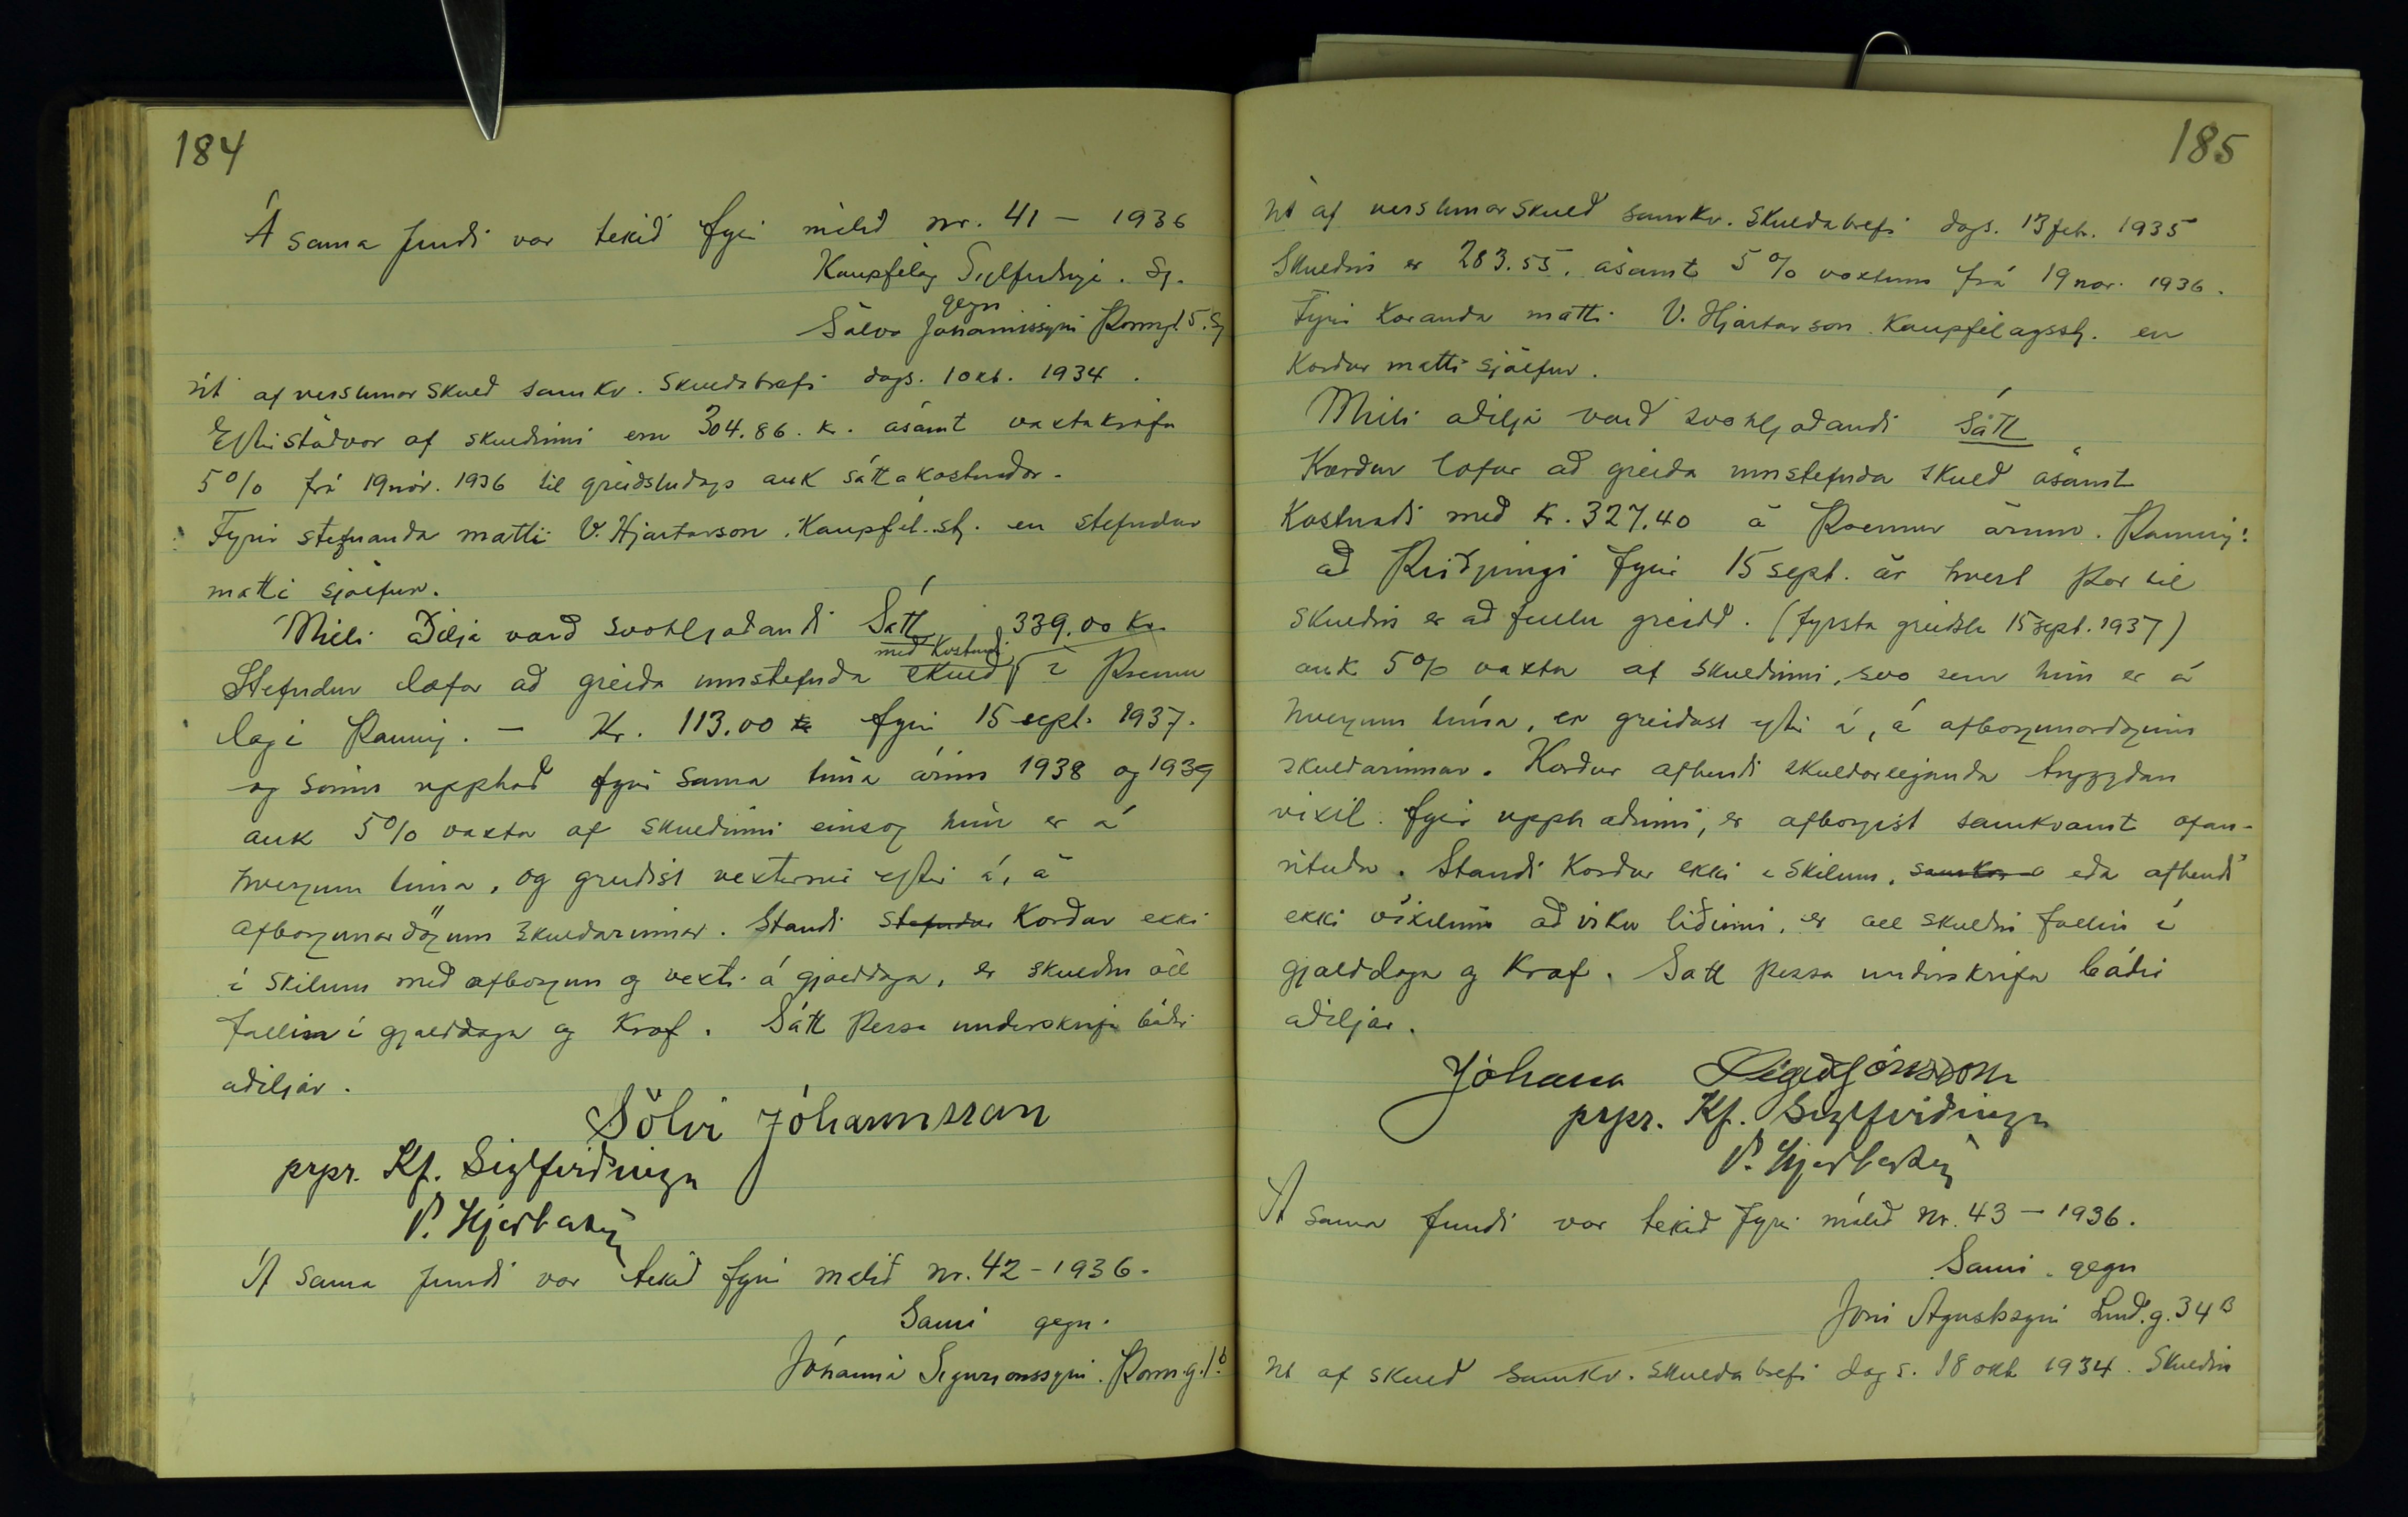 184
Á sama fundi var tekið fyrir málið nr. 41 – 1936
Kaupfélag Siglfirðinga. Sj.
gegn
Sölva Jóhannssyni Þormg. 5. Sj
út af verslunarskuld samkv. skuldabréfi dags. 1 okt. 1934.
Eftirstöðvar af skuldinni eru 304.86. kr. ásamt vaxtakröfu
5% frá 19 nóv. 1936 til greiðsludags auk sáttakostnaðar.
Fyrir stefnanda mætti V. Hjartarson. Kaupfél.stj. en stefndur
mætti sjálfur.
Milli aðilja varð svohljóðandi Sátt 339.00 kr.
með kostnaði
Stefndur lofar að greiða umstefnda skuld í þrennu
lagi þannig. – Kr. 113.00 kr fyrir 15 sept. 1937.
og sömu upphæð fyrir sama tíma árin 1938 og 1939
auk 5% vaxta af skuldinni einsog hún er á
hverjum tíma, og greiðist vextirnir eftir á, á
afborgunardögum skuldarinnar. Standi stefndur Kærður ekki
í skilum með afborgun og vexti á gjalddaga, er skuldin öll
fallin í gjalddaga og kræf. Sátt þessa undirskrifa báðir
aðiljar.
Sölvi Jóhannsson
prpr. Kf. Siglfirðinga
V. Hjartarson
Á sama fundi var tekið fyrir málið nr. 42 – 1936.
Sami gegn.
Jóhanni Sigurjónssyni. Þorm.g. 1b
185
út af verslunarskuld samkv. skuldabréfi dags. 13 febr. 1935
Skuldin er 283.55. ásamt 5% vöxtum frá 19 nóv. 1936.
Fyrir kæranda mætti V. Hjartarson. Kaupfélagsstj. en
Kærður mætti sjálfur.
Milli aðilja varð svohljóðandi Sátt
Kærður lofar að greiða umstefnda skuld ásamt
kostnaði með kr. 327.40 á þremur árum. Þannig:
að þriðjungi fyrir 15 sept. ár hvert þar til
skuldin er að fullu greidd. (fyrsta greiðsla 15 sept. 1937)
auk 5% vaxta af skuldinni, svo sem hún er á
hverjum tíma, er greiðast eftir á, á afborgunardögum
skuldarinnar. Kærður afhendi skuldareiganda tryggðan
víxil. fyrir upphæðinni, er afborgist samkvæmt ofan-
rituðu. Standi Kærður ekki í skilum, samkv eða afhendi
ekki víxilinn að viku liðinni, er öll skuldin fallin í
gjalddaga og kræf. Sátt þessa undirskrifa báðir
aðiljar.
Jóhann Sigurjónsson
prpr. Kf. Siglfirðinga
V. Hjartarson
Á sama fundi var tekið fyrir málið nr. 43 – 1936.
Sami. gegn
Jóni Ágústssyni Lind.g. 34B
út af skuld samkv. skuldabréfi dags. 18 okt 1934. Skuldin